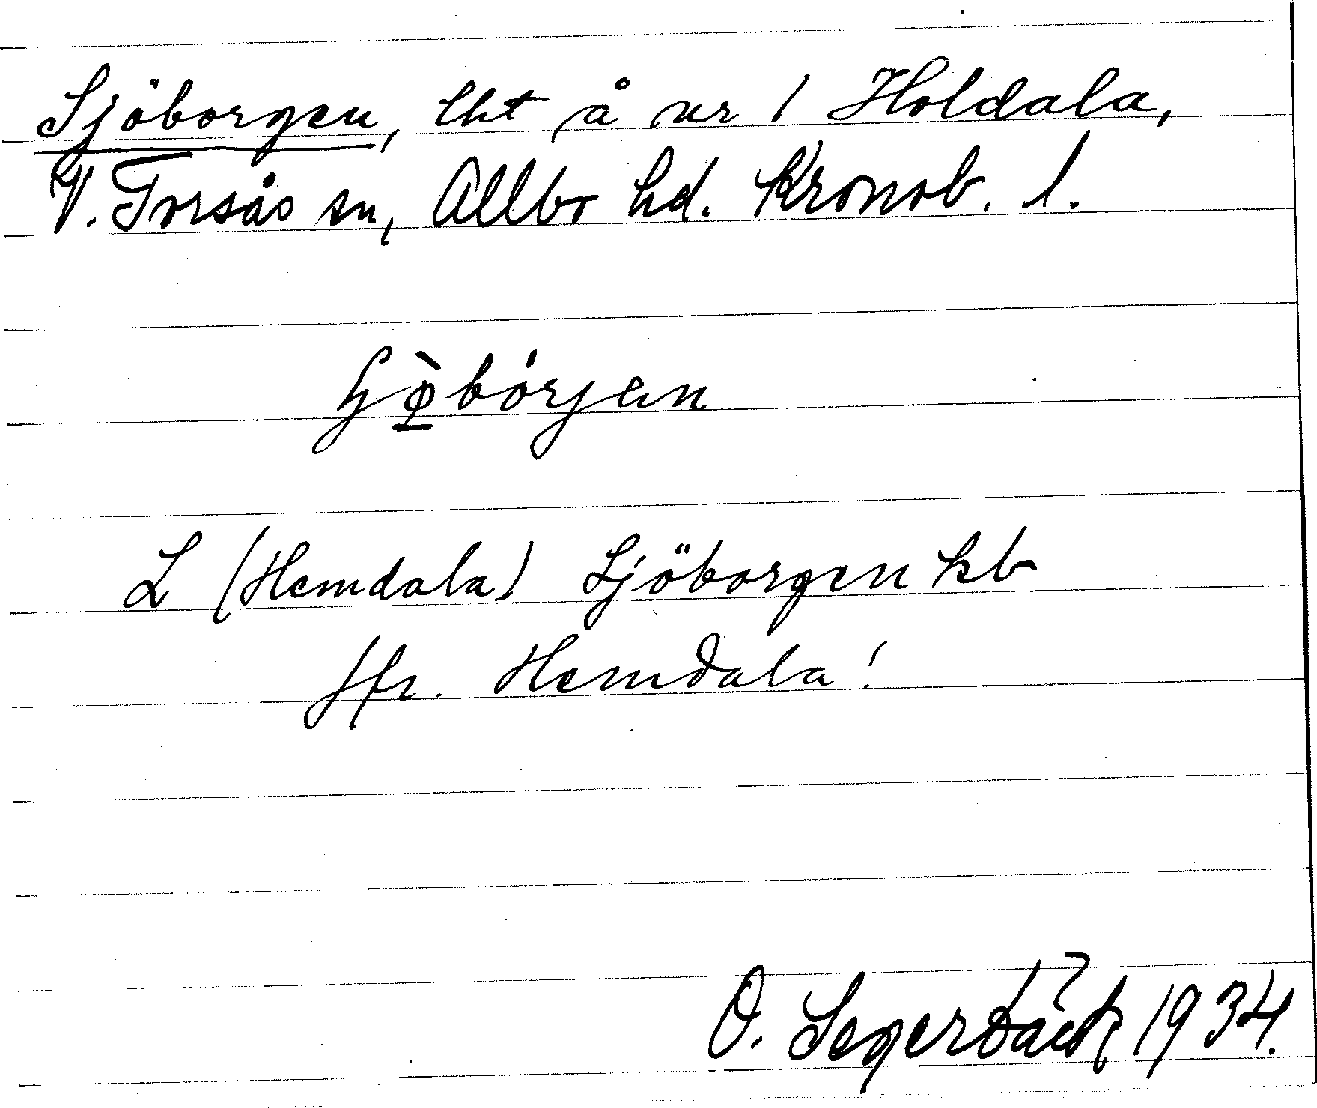 Sjöborgen, lht å nr 1 Holdala,
V. Torsås sn, Allbo hd. Kronob. l.
L (Hemdala) Sjöborgen kb
Jfr. Hemdala!
O. Segerbäck 1934.